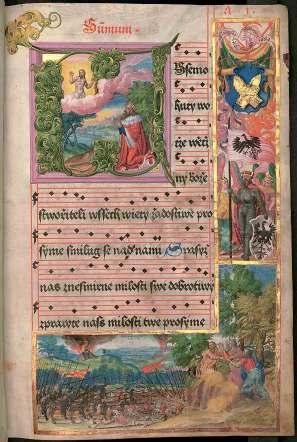 Summum
Wssemo
huty wo
tze wěti
ny bože
stworiteli wssech wiecy žadostiwe pro
syme smilug se nad nami S prasyž
nas zniesmirne milosti swe dobrotiwy
zprawte nass milosti twe prosyme